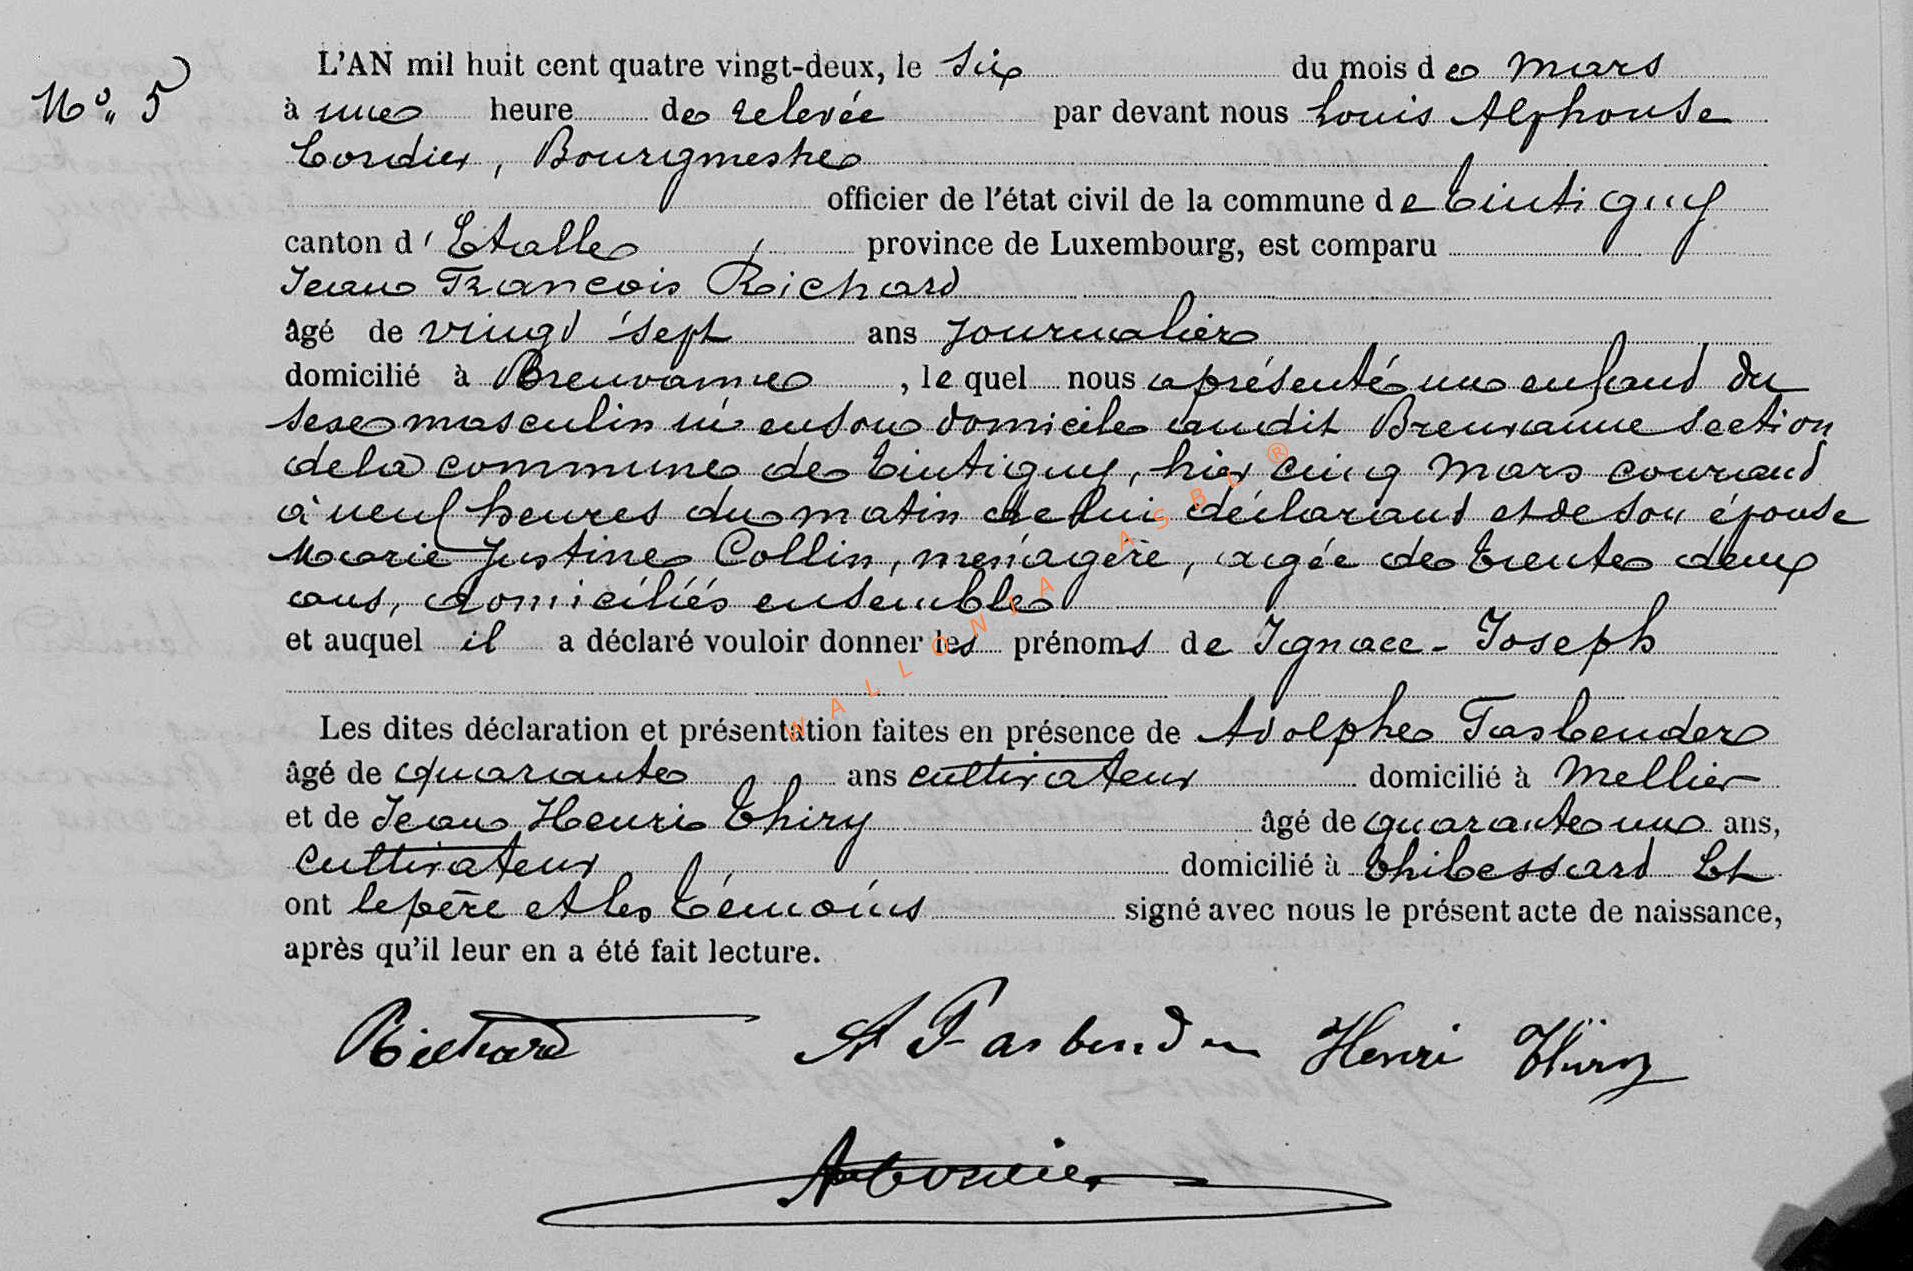 N° 5
L'AN mil huit cent quatre vingt-deux, le six du mois de mars
à une heure de relevée par devant nous Louis Alphonse
Cordier, Bourgmestre
officier de l'état civil de la commune de Tintigny
canton d'Etalle, province de Luxembourg, est comparu
Jean François Richard
âgé de vingt sept ans Journalier
domicilié à Breuvanne, lequel nous a présenté un enfant du
sexe masculin né en son domicile audit Breuvanne section
de la commune de Tintigny, hier cinq Mars courant
à neuf heures du matin de lui déclarant et de son épouse
Marie Justine Collin, menagère, agée de trente deux
ans, domiciliés ensemble
et auquel il a déclaré vouloir donner les prénoms de Ignace-Joseph
Les dites déclaration et présentation faites en présence de Adolphe Fasbender
âgé de quarante ans cultivateur domicilié à Mellier
et de Jean Henri Thiry âgé de quarante un ans,
cultivateur domicilié à Thibessard Et
ont le père et les témoins signé avec nous le présent acte de naissance,
après qu'il leur en a été fait lecture.
Richard A Fasbender Henri Thiry
A Cordier
WALLONIA ASBL ®